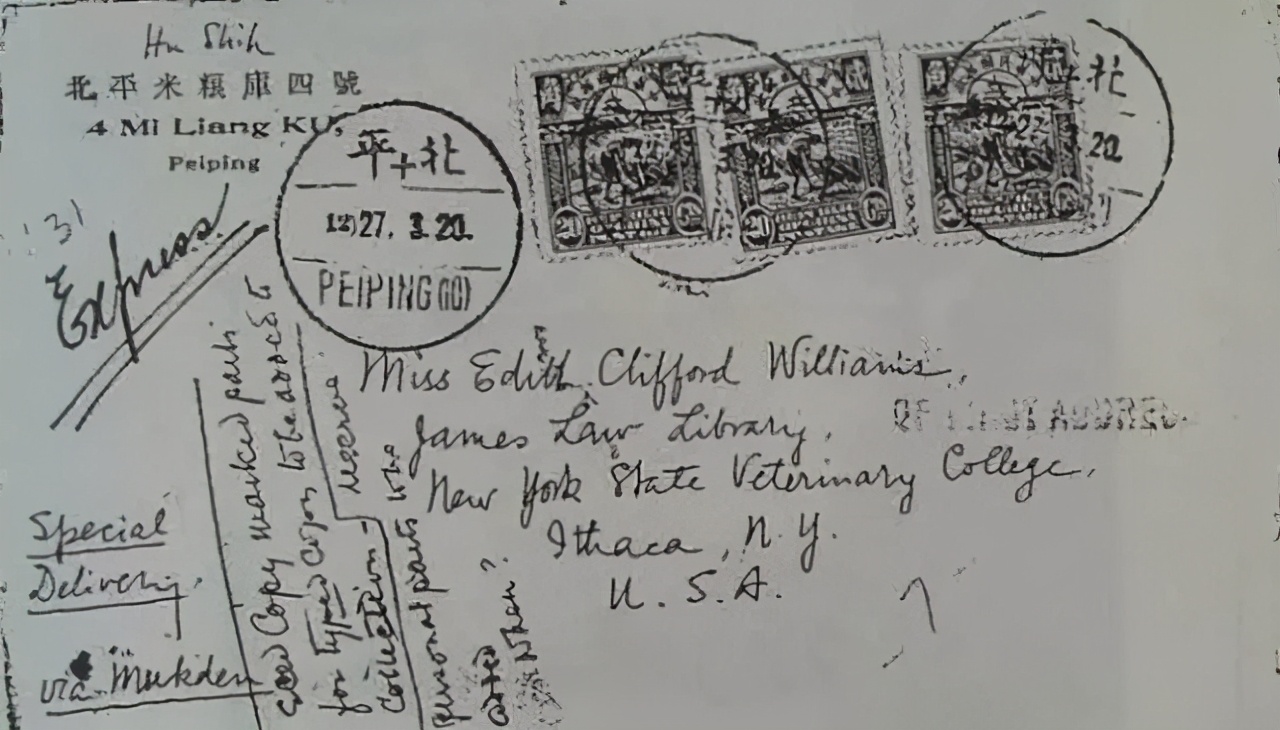 Hu Shih
北平米糧庫四號
4 Mi Liang KU,
Peiping
31
Express
平十北
27. 3.20.
PEIPING (10)
北
20
Miss Edith Clifford Williams,
James Law Library,
New York State Veterinary College,
Ithaca, N. Y.
U. S. A.
Special
Delivery,
via Mukden
Copy marked parts
for typed Copy to be added to
Collection - reserve
personal parts
When?